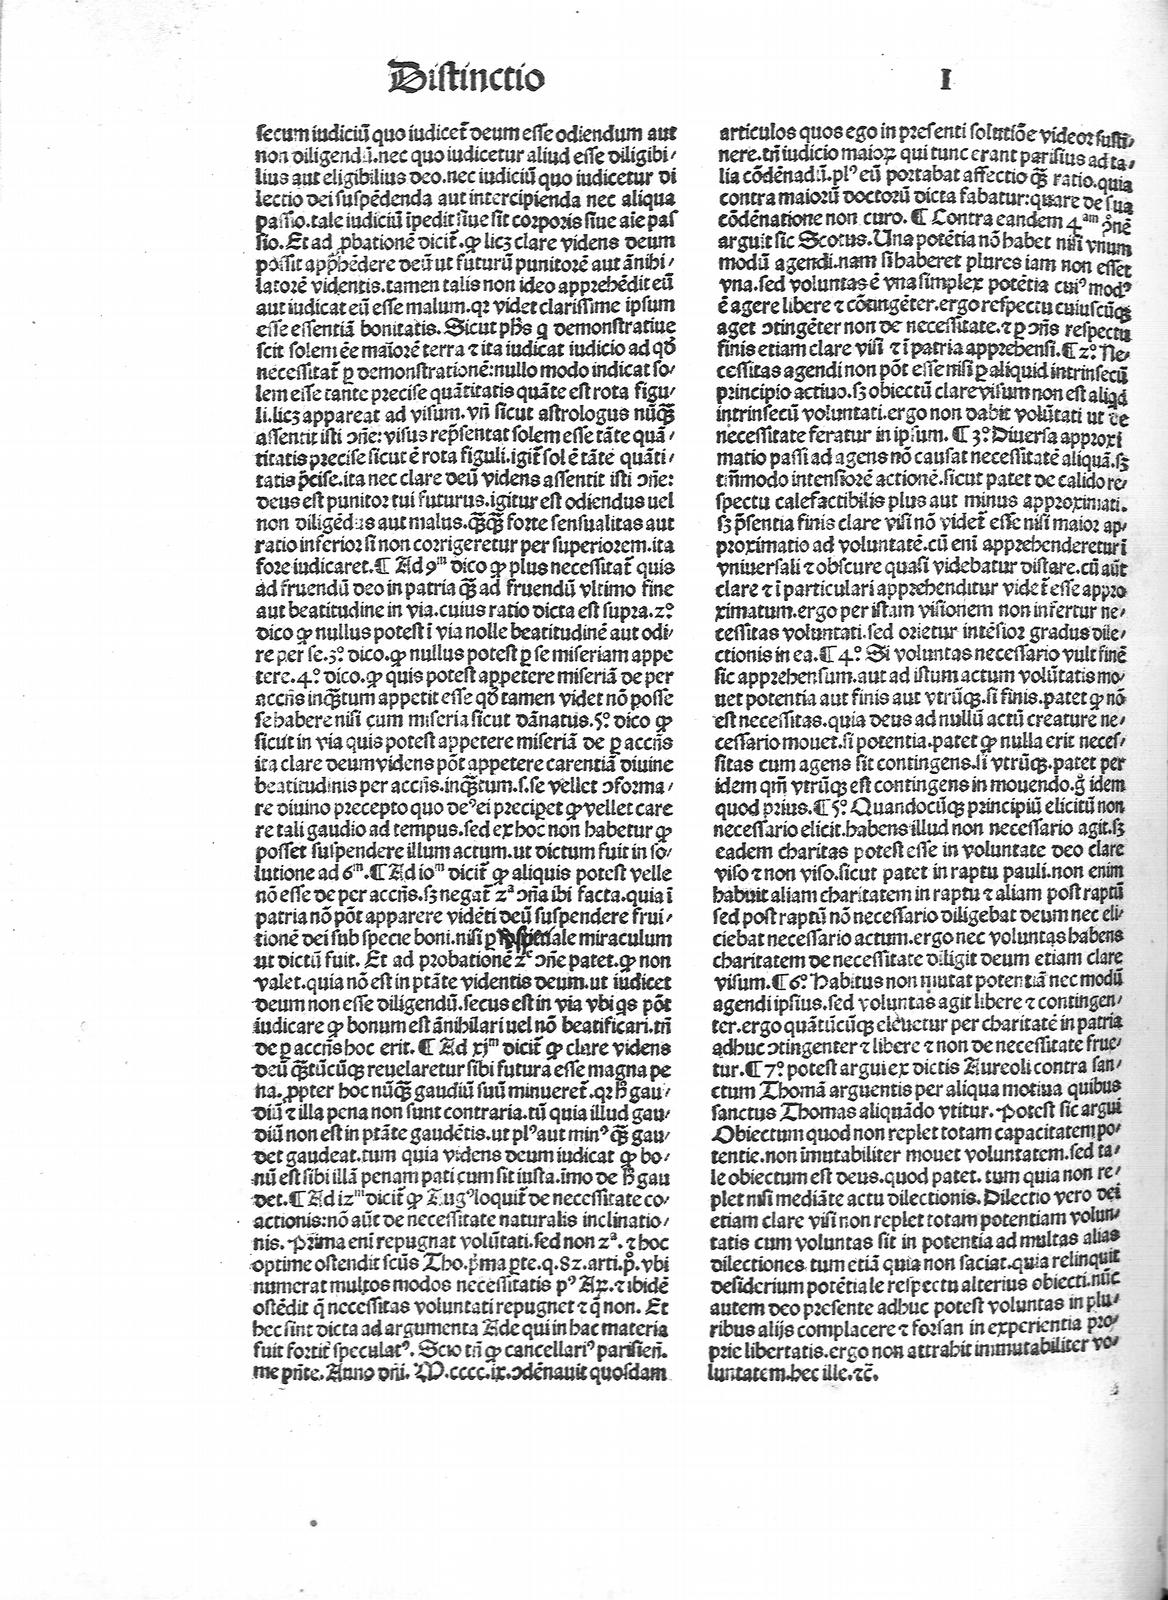 Distinctio I
secum iudiciū quo iudicet̄ deum esse odiendum aut
non diligendū.nec quo iudicetur aliud esse diligibi/
lius aut eligibilius deo.nec iudiciū quo iudicetur di
lectio dei suspēdenda aut intercipienda nec aliqua
passio.tale iudiciū īpedit siue sit corporis siue aīe pas
sio. Et ad ꝓbationē dicit̄.ꝙ licꝫ clare videns deum
possit app̄hēdere deū ut futurū punitorē aut ānihi/
latorē videntis.tamen talis non ideo apprehēdit eū
aut iudicat eū esse malum.qꝛ videt clarissime ipsum
esse essentiā bonitatis. Sicut ph̄s q̄ demonstratiue
scit solem ēe maiorē terra ⁊ ita iudicat iudicio ad qđ
necessitat̄ ꝑ demonstrationē:nullo modo indicat so/
lem esse tante precise quātitatis quāte est rota figu/
li.licꝫ appareat ad visum. vn̄ sicut astrologus nūꝙ̄
assentit isti ↄn̄e: visus rep̄sentat solem esse tāte quā/
titatis precise sicut ē rota figuli.igit̄ sol ē tāte quāti/
tatis p̄cise.ita nec clare deū videns assentit isti ↄn̄e:
deus est punitor tui futurus.igitur est odiendus uel
non diligēdus aut malus.ꝙ̄ꝙ̄ forte sensualitas aut
ratio inferior si non corrigeretur per superiorem.ita
fore iudicaret.¶ Ad 9ᵐ dico ꝙ plus necessitat̄ quis
ad fruendū deo in patria ꝙ̄ ad fruendū vltimo fine
aut beatitudine in via.cuius ratio dicta est supra.2º
dico ꝙ nullus potest ī via nolle beatitudinē aut odi/
re per se.3º dico.ꝙ nullus potest ꝑ se miseriam appe
tere.4º dico.ꝙ quis potest appetere miseriā de per
accn̄s inꝙ̄tum appetit esse qđ tamen videt nō posse
se habere nisi cum miseria sicut dānatus.5º dico ꝙ
sicut in via quis potest appetere miseriā de ꝑ accn̄s
ita clare deum videns pōt appetere carentiā diuine
beatitudinis per accn̄s.inꝙ̄tum.s.se vellet ↄforma/
re diuino precepto quo deꝰ ei precipet ꝙ vellet care
re tali gaudio ad tempus.sed ex hoc non habetur ꝙ
posset suspendere illum actum.ut dictum fuit in so/
lutione ad 6ᵐ.¶ Ad 10ᵐ dicit̄ ꝙ aliquis potest velle
nō esse de per accn̄s.sꝫ negat̄ 2ᵃ ↄn̄a ibi facta.quia ī
patria nō pōt apparere vidēti deū suspendere frui/
tionē dei sub specie boni.nisi ꝑ speciale miraculum
ut dictū fuit. Et ad probationē 2ᵉ ↄn̄e patet.ꝙ non
valet.quia nō est in ptāte videntis deum.ut iudicet
deum non esse diligendū.secus est in via vbi q̇s pōt
iudicare ꝙ bonum est ānihilari uel nō beatificari.tn̄
de ꝑ accn̄s hoc erit. ¶ Ad xjᵐ dicit̄ ꝙ clare videns
deū ꝙ̄tūcūqꝫ reuelaretur sibi futura esse magna pe
na.ꝓpter hoc nūꝙ̄ gaudiū suū minueret̄.qꝛ h̄ gau/
diū ⁊ illa pena non sunt contraria.tū quia illud gau/
diū non est in ptāte gaudētis.ut plꝰ aut minꝰ ꝙ̄ gau/
det gaudeat.tum quia videns deum iudicat ꝙ bo/
nū est sibi illā penam pati cum sit iusta.imo de h̄ gau
det.¶ Ad 12ᵐ dicit̄ ꝙ Augꝰ loquit̄ de necessitate co/
actionis:nō aūt de necessitate naturalis inclinatio/
nis. Prima enī repugnat volūtati.sed non 2ᵃ.⁊ hoc
optime ostendit scūs Tho.p̄ma ꝑte.q.82.arti.pº.vbi
numerat multos modos necessitatis pꝰ Aꝝ.⁊ ibidē
ostēdit q̄ necessitas voluntati repugnet ⁊ q̄ non. Et
hec sint dicta ad argumenta Ade qui in hac materia
fuit fortit̄ speculatꝰ. Scio tn̄ ꝙ cancellariꝰ parisieñ.
me pn̄te. Anno dn̄i. M.cccc.ix.ↄdēnauit quosdam
articulos quos ego in presenti solutiōe videor susti/
nere.tn̄ iudicio maioꝝ qui tunc erant parisius ad ta/
lia cōdēnadū.plꝰ eū portabat affectio ꝙ̄ ratio.quia
contra maiorū doctorū dicta fabatur:quare de sua
cōdēnatione non curo. ¶ Contra eandem 4ᵃᵐ ↄ̄nē
arguit sic Scotus.Una potētia nō habet nisi vnum
modū agendi.nam si haberet plures iam non esset
vna.sed voluntas ē vna simplex potētia cuiꝰ modꝰ
ē agere libere ⁊ cōtingēter.ergo respectu cuiuscūqꝫ
aget ↄtingēter non de necessitate.⁊ ꝑ ↄn̄s respectu
finis etiam clare visi ⁊ ī patria apprehensi.¶ 2º Ne/
cessitas agendi non pōt esse nisi ꝑ aliquid intrinsecū
principio actiuo.sꝫ obiectū clare visum non est aliqd
intrinsecū voluntati.ergo non dabit volūtati ut de
necessitate feratur in ipsum. ¶ 3º Diuersa approxi
matio passi ad agens nō causat necessitatē aliquā.sꝫ
tn̄modo intensiorē actionē.sicut patet de calido re/
spectu calefactibilis plus aut minus approximati.
sꝫ p̄sentia finis clare visi nō videt̄ esse nisi maior ap/
proximatio ad voluntatē.cū enī apprehenderetur ī
vniuersali ⁊ obscure quasi videbatur distare.cū aūt
clare ⁊ ī particulari apprehenditur videt̄ esse appro
ximatum.ergo per istam visionem non infertur ne/
cessitas voluntati.sed orietur intēsior gradus dile/
ctionis in ea.¶ 4º Si voluntas necessario vult finē
sic apprehensum.aut ad istum actum volūtatis mo/
uet potentia aut finis aut vtrūqꝫ.si finis.patet ꝙ nō
est necessitas.quia deus ad nullū actū creature ne/
cessario mouet.si potentia.patet ꝙ nulla erit neces/
sitas cum agens sit contingens.si vtrūqꝫ.patet per
idem qm̄ vtrūqꝫ est contingens in mouendo.g̊ idem
quod prius.¶ 5º Quandocūqꝫ principiū elicitū non
necessario elicit.habens illud non necessario agit.sꝫ
eadem charitas potest esse in voluntate deo clare
viso ⁊ non viso.sicut patet in raptu pauli.non enim
habuit aliam charitatem in raptu ⁊ aliam post raptū
sed post raptū nō necessario diligebat deum nec eli/
ciebat necessario actum.ergo nec voluntas habens
charitatem de necessitate diligit deum etiam clare
visum.¶ 6º Habitus non mutat potentiā nec modū
agendi ipsius.sed voluntas agit libere ⁊ contingen/
ter.ergo quātūcūqꝫ eleuetur per charitatē in patria
adhuc ↄtingenter ⁊ libere ⁊ non de necessitate frue/
tur.¶ 7º potest argui ex dictis Aureoli contra san/
ctum Thomā arguentis per aliqua motiua quibus
sanctus Thomas aliquādo vtitur. Potest sic argui
Obiectum quod non replet totam capacitatem po/
tentie.non īmutabiliter mouet voluntatem.sed ta/
le obiectum est deus.quod patet. tum quia non re/
plet nisi mediāte actu dilectionis. Dilectio vero dei
etiam clare visi non replet totam potentiam volun/
tatis cum voluntas sit in potentia ad multas alias
dilectiones. tum etiā quia non saciat.quia relinquit
desiderium potētiale respectu alterius obiecti.nūc
autem deo presente adhuc potest voluntas in plu/
ribus alijs complacere ⁊ forsan in experientia pro/
prie libertatis.ergo non attrahit immutabiliter vo/
luntatem.hec ille.⁊c̄.